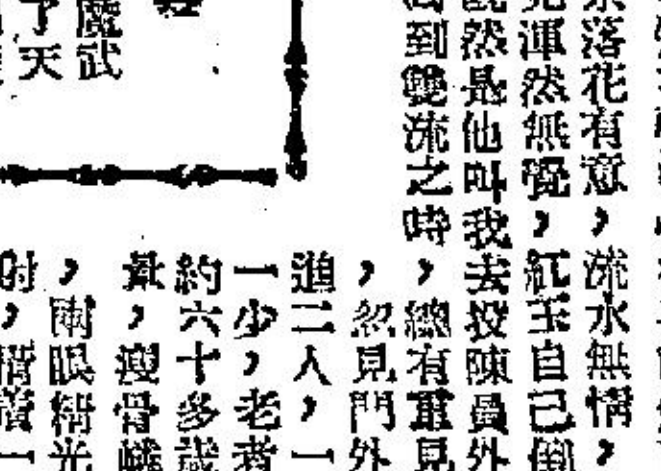 落花有意，流水無情，
渾然無覺，紅玉自己倒
然是他叫我去投陳員外
到雙流之時，總有重見
，忽見門外
進二人，一
一少，老者
約六十多歲
，瘦骨
，兩眼精光
射，精
魔武
了天